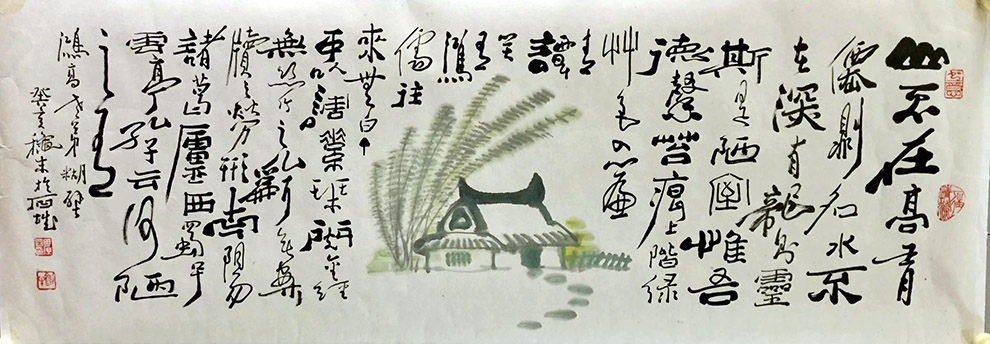 山不在高有
僊則名水不
在深有龍則靈
斯是陋室惟吾
德馨苔痕上階綠
艸色入簾
青
談
笑
有
鴻
儒往
來無白丁
可以調素琴閱金經
無絲竹之乱耳無案
牘之勞形南陽
諸葛廬西蜀子
雲亭孔子云何陋
之有
鴻高老弟糊壁
癸亥穐末於西城